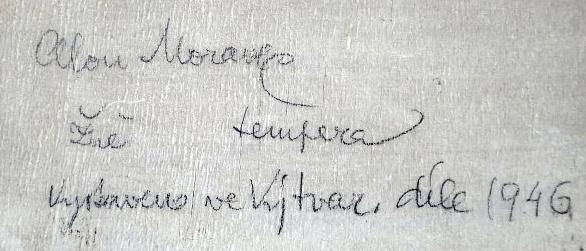 Alou Morav
Žně tempera
Vystaveno ve Výtvar. díle 1946